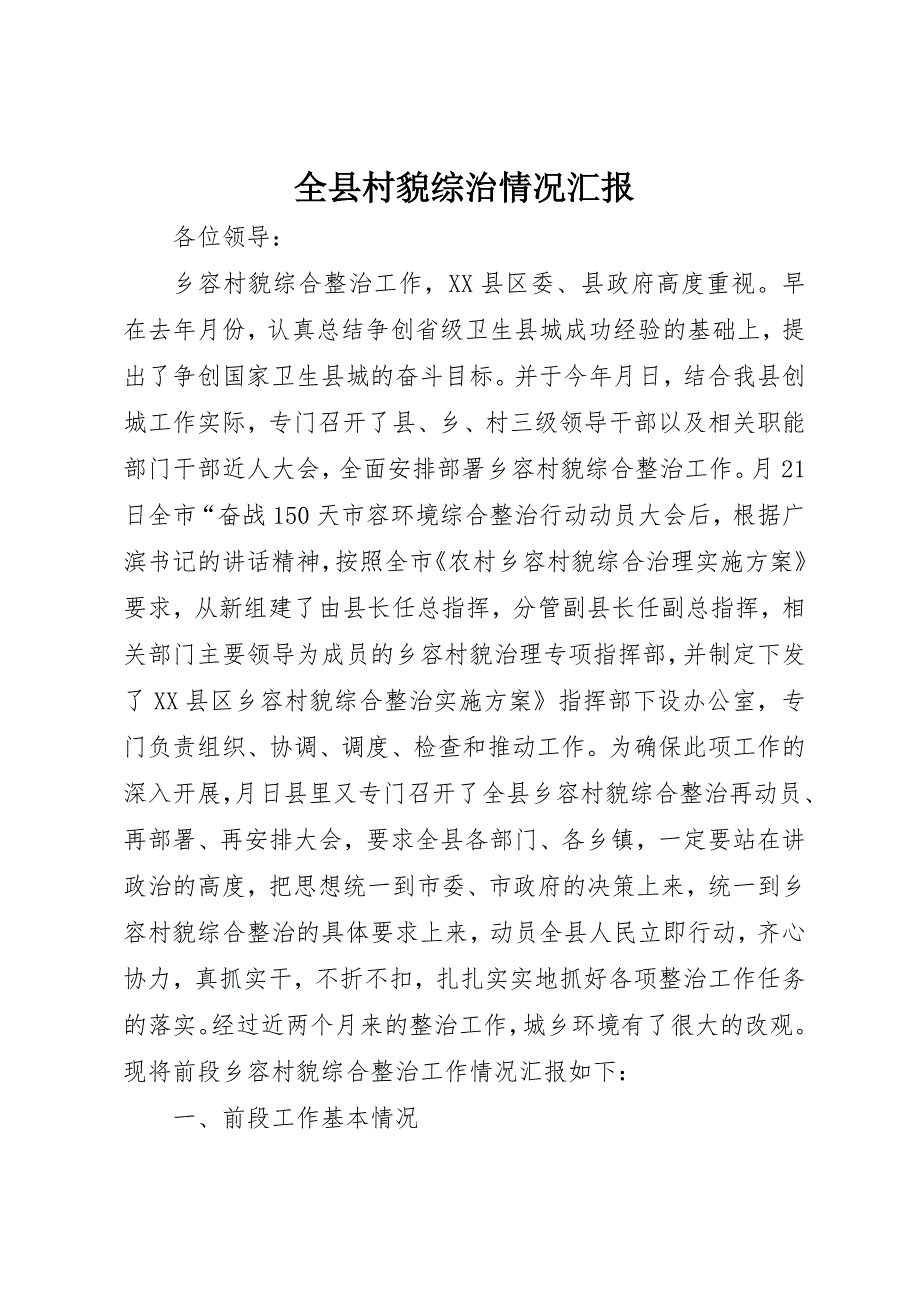 全县村貌综治情况汇报
各位领导：
乡容村貌综合整治工作，XX 县区委、县政府高度重视。早
在去年月份，认真总结争创省级卫生县城成功经验的基础上，提
出了争创国家卫生县城的奋斗目标。并于今年月日，结合我县创
城工作实际，专门召开了县、乡、村三级领导干部以及相关职能
部门干部近人大会，全面安排部署乡容村貌综合整治工作。月 21
日全市“奋战 150 天市容环境综合整治行动动员大会后，根据广
滨书记的讲话精神，按照全市《农村乡容村貌综合治理实施方案》
要求，从新组建了由县长任总指挥，分管副县长任副总指挥，相
关部门主要领导为成员的乡容村貌治理专项指挥部，并制定下发
了 XX 县区乡容村貌综合整治实施方案》指挥部下设办公室，专
门负责组织、协调、调度、检查和推动工作。为确保此项工作的
深入开展，月日县里又专门召开了全县乡容村貌综合整治再动员、
再部署、再安排大会，要求全县各部门、各乡镇，一定要站在讲
政治的高度，把思想统一到市委、市政府的决策上来，统一到乡
容村貌综合整治的具体要求上来，动员全县人民立即行动，齐心
协力，真抓实干，不折不扣，扎扎实实地抓好各项整治工作任务
的落实。经过近两个月来的整治工作，城乡环境有了很大的改观。
现将前段乡容村貌综合整治工作情况汇报如下：
一、前段工作基本情况